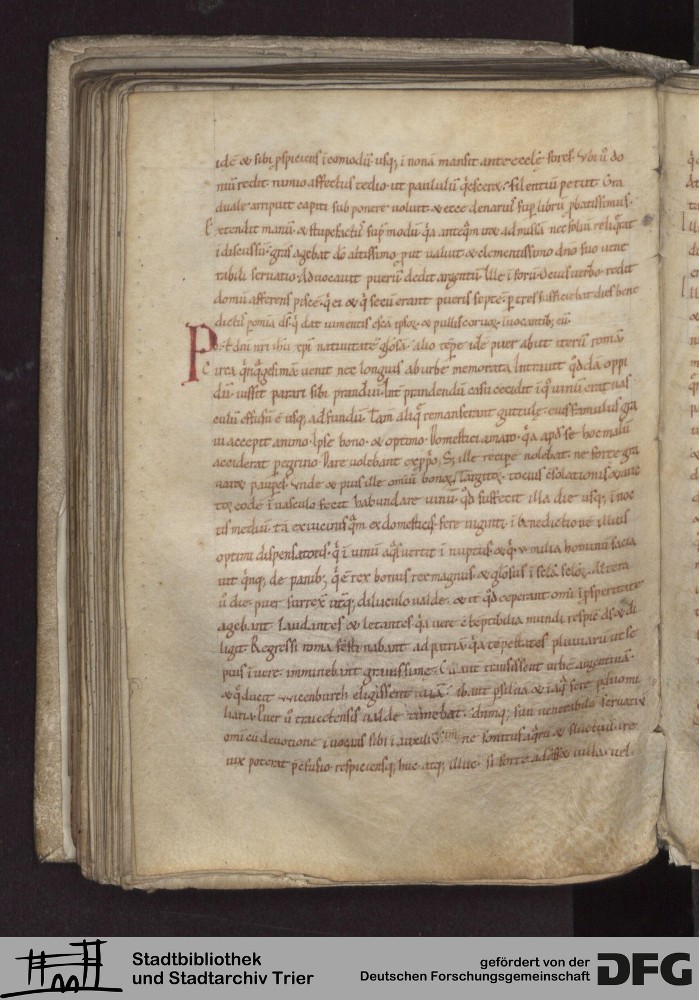 idē & sibi pspiciens īcomodū usq; ī nonā mansit ante eccłę fores. Vbi ū do
mū redit nimio affectus tedio ut paululū q̇escere. silentium petiit. Gra
duale arripuit capiti sub ponere voluit & ecce denarius sup librū pbatissimus.
Extendit manū. & stupefactus sup modū. q̇a anteq̄m ire ad missā nec solum reliqrat
ī discussū. gras agebat dō altissimo. put valuit & clementissimo dnō suo vene
rabili servatio. Advocavit puerū dedit argentū. Ille ī forū. & eius verbo redit
domū afferens piscē. q̇ ei & q̇ secū erant pueris septē p tres sufficiebat dies bene
dictus p omia ds̄. q̇ dat iumentis escā ipsoꝝ. & pullis corvoꝝ. īvocantib; eū.
Post dni nri ihu xpi nativitatē glosā. alio tēpe idē puer abiit iterū romā.
Circa q̇nq̇gesimā venit nec longius ab urbe memorata. Intravit q̇dā oppi
dū. iussit parari sibi prandiū. Int prandendū casu cecidit ī q̇ vinū erat vas
culū effusū ē usq; ad fundū. Tam aliq̇ remanserant guttulę. eius famulus gra
vi accepit animo. Ipse bono. & optimo. Domestici amato. q̇a apd se hoc malū
acciderat pegrino. Dare volebant ex ppo. S; ille recipe nolebat. ne forte gra
varet paupes. Unde & pius ille omiū bonoꝝ largitoꝝ. tocius ēsolationis &ame
toꝝ eodē ī vasculo fecit habundare vinū. qd suffecit illa die usq; ī noc
tis mediū. tā ex vicinis q̄m ex domesticis. fere viginti. ī benedictione illius
optimi dispensatoris. q̇ ī vinū aq̄s vertit ī nuptiis. & q̇nq; milia hominū sacia
vit q̇nq; de panib;. q̇ ē rex bonus rex magnus & glosus ī sctā sctoꝝ. Altera
ū die puer surrexit itaq; diluculo valde. & it qd ceperant omi ī psperitate
agebant. Laudantes & letantes. q̇a vere ē heptibilia mundi respic ds̄ & di
ligit. Regressi roma festinabant ad patriā. q̇a tēpestates pluviarū ut se
pius ī vere. imminebant gravissime. Cū aut transissent urbē argentinā.
& q̇ ducit wicenburch eligissent viā. ibant p silvā & īaq̇ sere p avomi
liaria. Puer ū traiectensis valde timebat. dnmq; suū venerabilē servatiū
omi cū devotione īvocans sibi ī auxiliū ne sonitus aq̇rū & silve audire
vix poterat p ēfusio. respiciensq; huc atq; illuc. si forte adesset villa vel
Stadtbibliothek
und Stadtarchiv Trier
gefördert von der
Deutschen Forschungsgemeinschaft
DFG